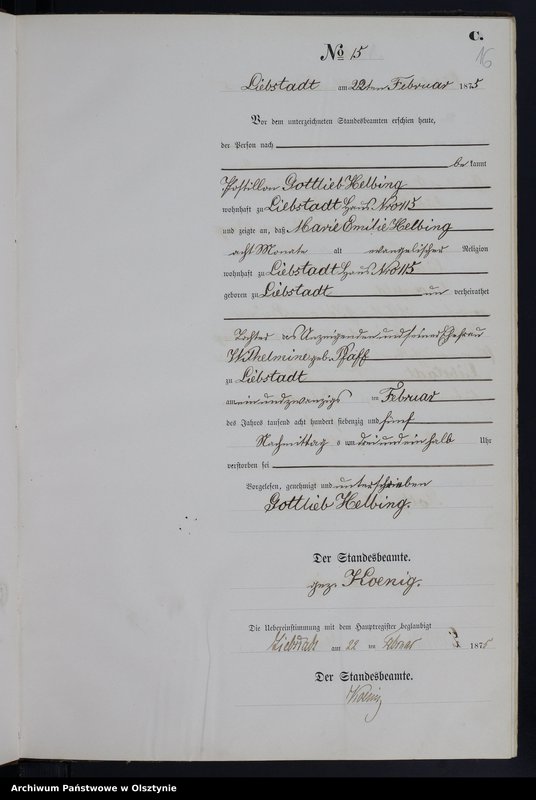 C.
16
No 15
Liebstadt am 22ten Februar 1875
Vor dem unterzeichneten Standesbeamten erschien heute,
der Person nach
be kannt
Postillon Gottlieb Helbing
wohnhaft zu Liebstadt Haus Nro 115
und zeigte an, daß Marie Emilie Helbing
acht Monate alt evangelischer Religion
wohnhaft zu Liebstadt Haus Nro 115
geboren zu Liebstadt un verheirathet
Tochter des Anzeigenden und seiner Ehefrau
Wilhelmine geb. Pfaff
zu Liebstadt
am ein und zwanzigs ten Februar
des Jahres tausend acht hundert siebenzig und fünf
Nachmittag s um drei und ein halb Uhr
verstorben sei
Vorgelesen, genehmigt und unterschrieben
Gottlieb Helbing.
Der Standesbeamte.
gez. Koenig.
Die Uebereinstimmung mit dem Hauptregister beglaubigt
Liebstadt am 22 ten Februar 1875
Der Standesbeamte.
Koenig
Archiwum Państwowe w Olsztynie